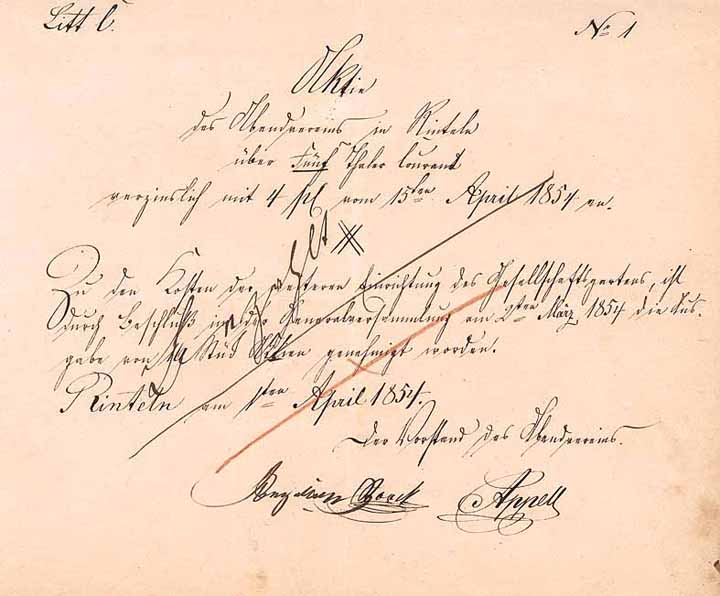 Litt C.
No 1
Aktie
des Abendvereins in Rinteln
über Fünf Thaler Courant
verzinslich mit 4 pC vom 15ten April 1854 an.
Zu den Kosten der weiteren Einrichtung des Gesellschaftsgartens, ist
durch Beschluß in der Generalversammlung am 2ten März 1854 die Aus-
gabe von Stück Aktien genehmigt worden.
Rinteln am 1ten April 1854.
Der Vorstand des Abendvereins.
Appell